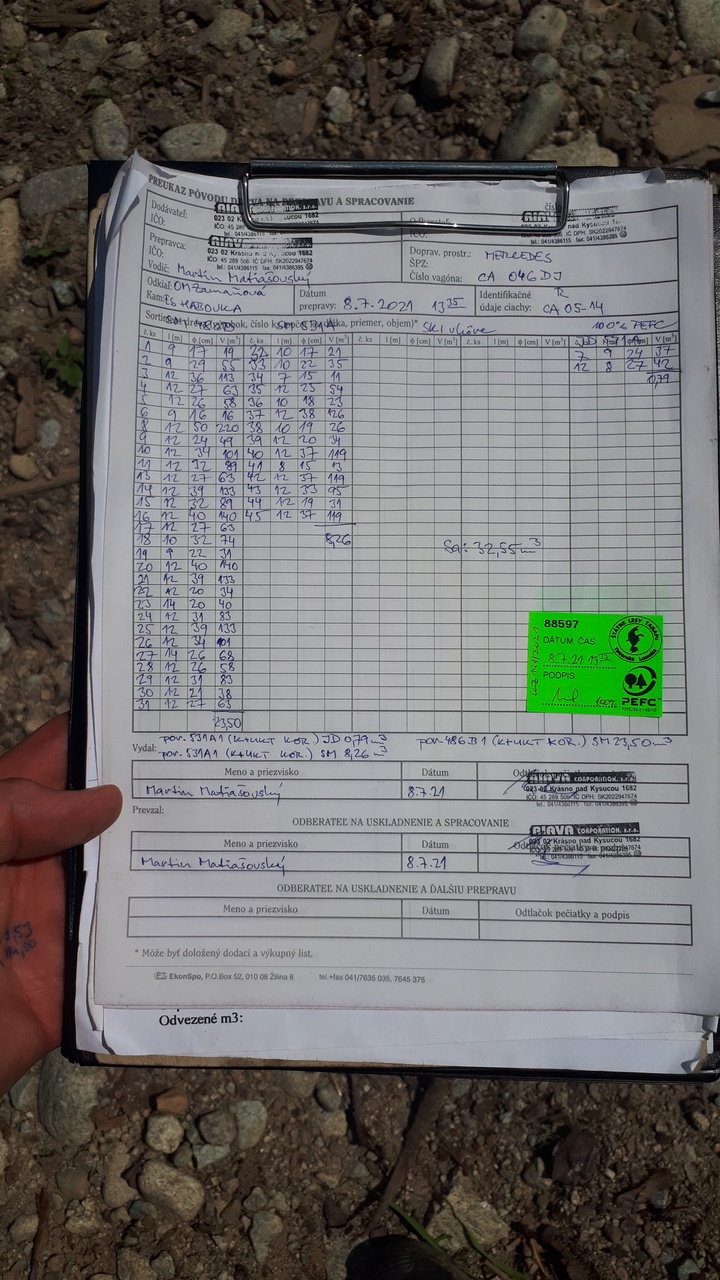 PREUKAZ PÔVODU DREVA NA PREPRAVU A SPRACOVANIE
Dodávateľ:
IČO:
RIAVA CORPORATION, s.r.o.
023 02 Krásno nad Kysucou 1682
IČO: 45 289 506 IČ DPH: SK2022947674
tel.: 041/4386115 fax: 041/4386395
IČO:
RIAVA
023 02 Krásno nad Kysucou 1682
IČO: 45 289 506 IČ DPH: SK2022947674
tel.: 041/4386115 fax: 041/4386395
Prepravca:
IČO:
RIAVA CORPORATION, s.r.o.
023 02 Krásno nad Kysucou 1682
IČO: 45 289 506 IČ DPH: SK2022947674
tel.: 041/4386115 fax: 041/4386395
Vodič: Martin Matiašovský
Doprav. prostr.: MERCEDES
ŠPZ:
Číslo vagóna: CA 046DJ
Odkiaľ: OM Zamaňová
Kam: ES HABOVKA
Dátum prepravy: 8.7.2021 13 35
Identifikačné údaje ciachy: CA 05-14
100% PEFC
č. ks l [m] ϕ [cm] V [m³] č. ks l [m] ϕ [cm] V [m³] č. ks l [m] ϕ [cm] V [m³] č. ks l [m] ϕ [cm] V [m³]
1 9 17 19 32 10 17 21 7 9 24 37
2 9 29 55 33 10 22 35 12 8 27 42
3 12 36 113 34 7 15 11 0,79
4 12 27 63 35 12 23 54
5 12 26 58 36 10 18 23
6 9 16 16 37 12 38 126
8 12 50 220 38 10 19 26
9 12 24 49 39 12 20 34
10 12 34 101 40 12 37 119
11 12 32 89 41 8 15 13
13 12 27 63 42 12 37 119
14 12 39 133 43 12 33 95
15 12 32 89 44 12 19 31
16 12 40 140 45 12 37 119
17 12 27 63
18 10 32 74 8,26
19 9 22 31 32,55 m³
20 12 40 140
21 12 39 133
22 12 20 34
23 14 20 40
24 12 31 83
25 12 39 133
26 12 34 101
27 14 26 68
28 12 26 58
29 12 31 83
30 12 21 38
31 12 27 63
23,50
88597
ŠTÁTNE LESY TANAPU
DÁTUM, ČAS
8.7.21 13 35
PODPIS
100%
PEFC
por. 531A1 (K+UKT KOR.) JD 0,79 m³ por. 486B1 (K+UKT KOR.) SM 23,50 m³
Vydal: por. 531A1 (K+UKT KOR.) SM 8,26 m³
Meno a priezvisko Dátum
Martin Matiašovský 8.7.21
RIAVA CORPORATION, s.r.o.
023 02 Krásno nad Kysucou 1682
IČO: 45 289 506 IČ DPH: SK2022947674
Prevzal:
ODBERATEĽ NA USKLADNENIE A SPRACOVANIE
Meno a priezvisko Dátum Odtlačok pečiatky a podpis
Martin Matiašovský 8.7.21
RIAVA CORPORATION, s.r.o.
023 02 Krásno nad Kysucou 1682
tel.: 041/4386115 fax: 041/4386395
ODBERATEĽ NA USKLADNENIE A ĎALŠIU PREPRAVU
Meno a priezvisko Dátum Odtlačok pečiatky a podpis
* Môže byť doložený dodací a výkupný list.
EkonSpo, P.O.Box 52, 010 08 Žilina 8 tel.+fax 041/7635 035, 7645 375
Odvezené m3: